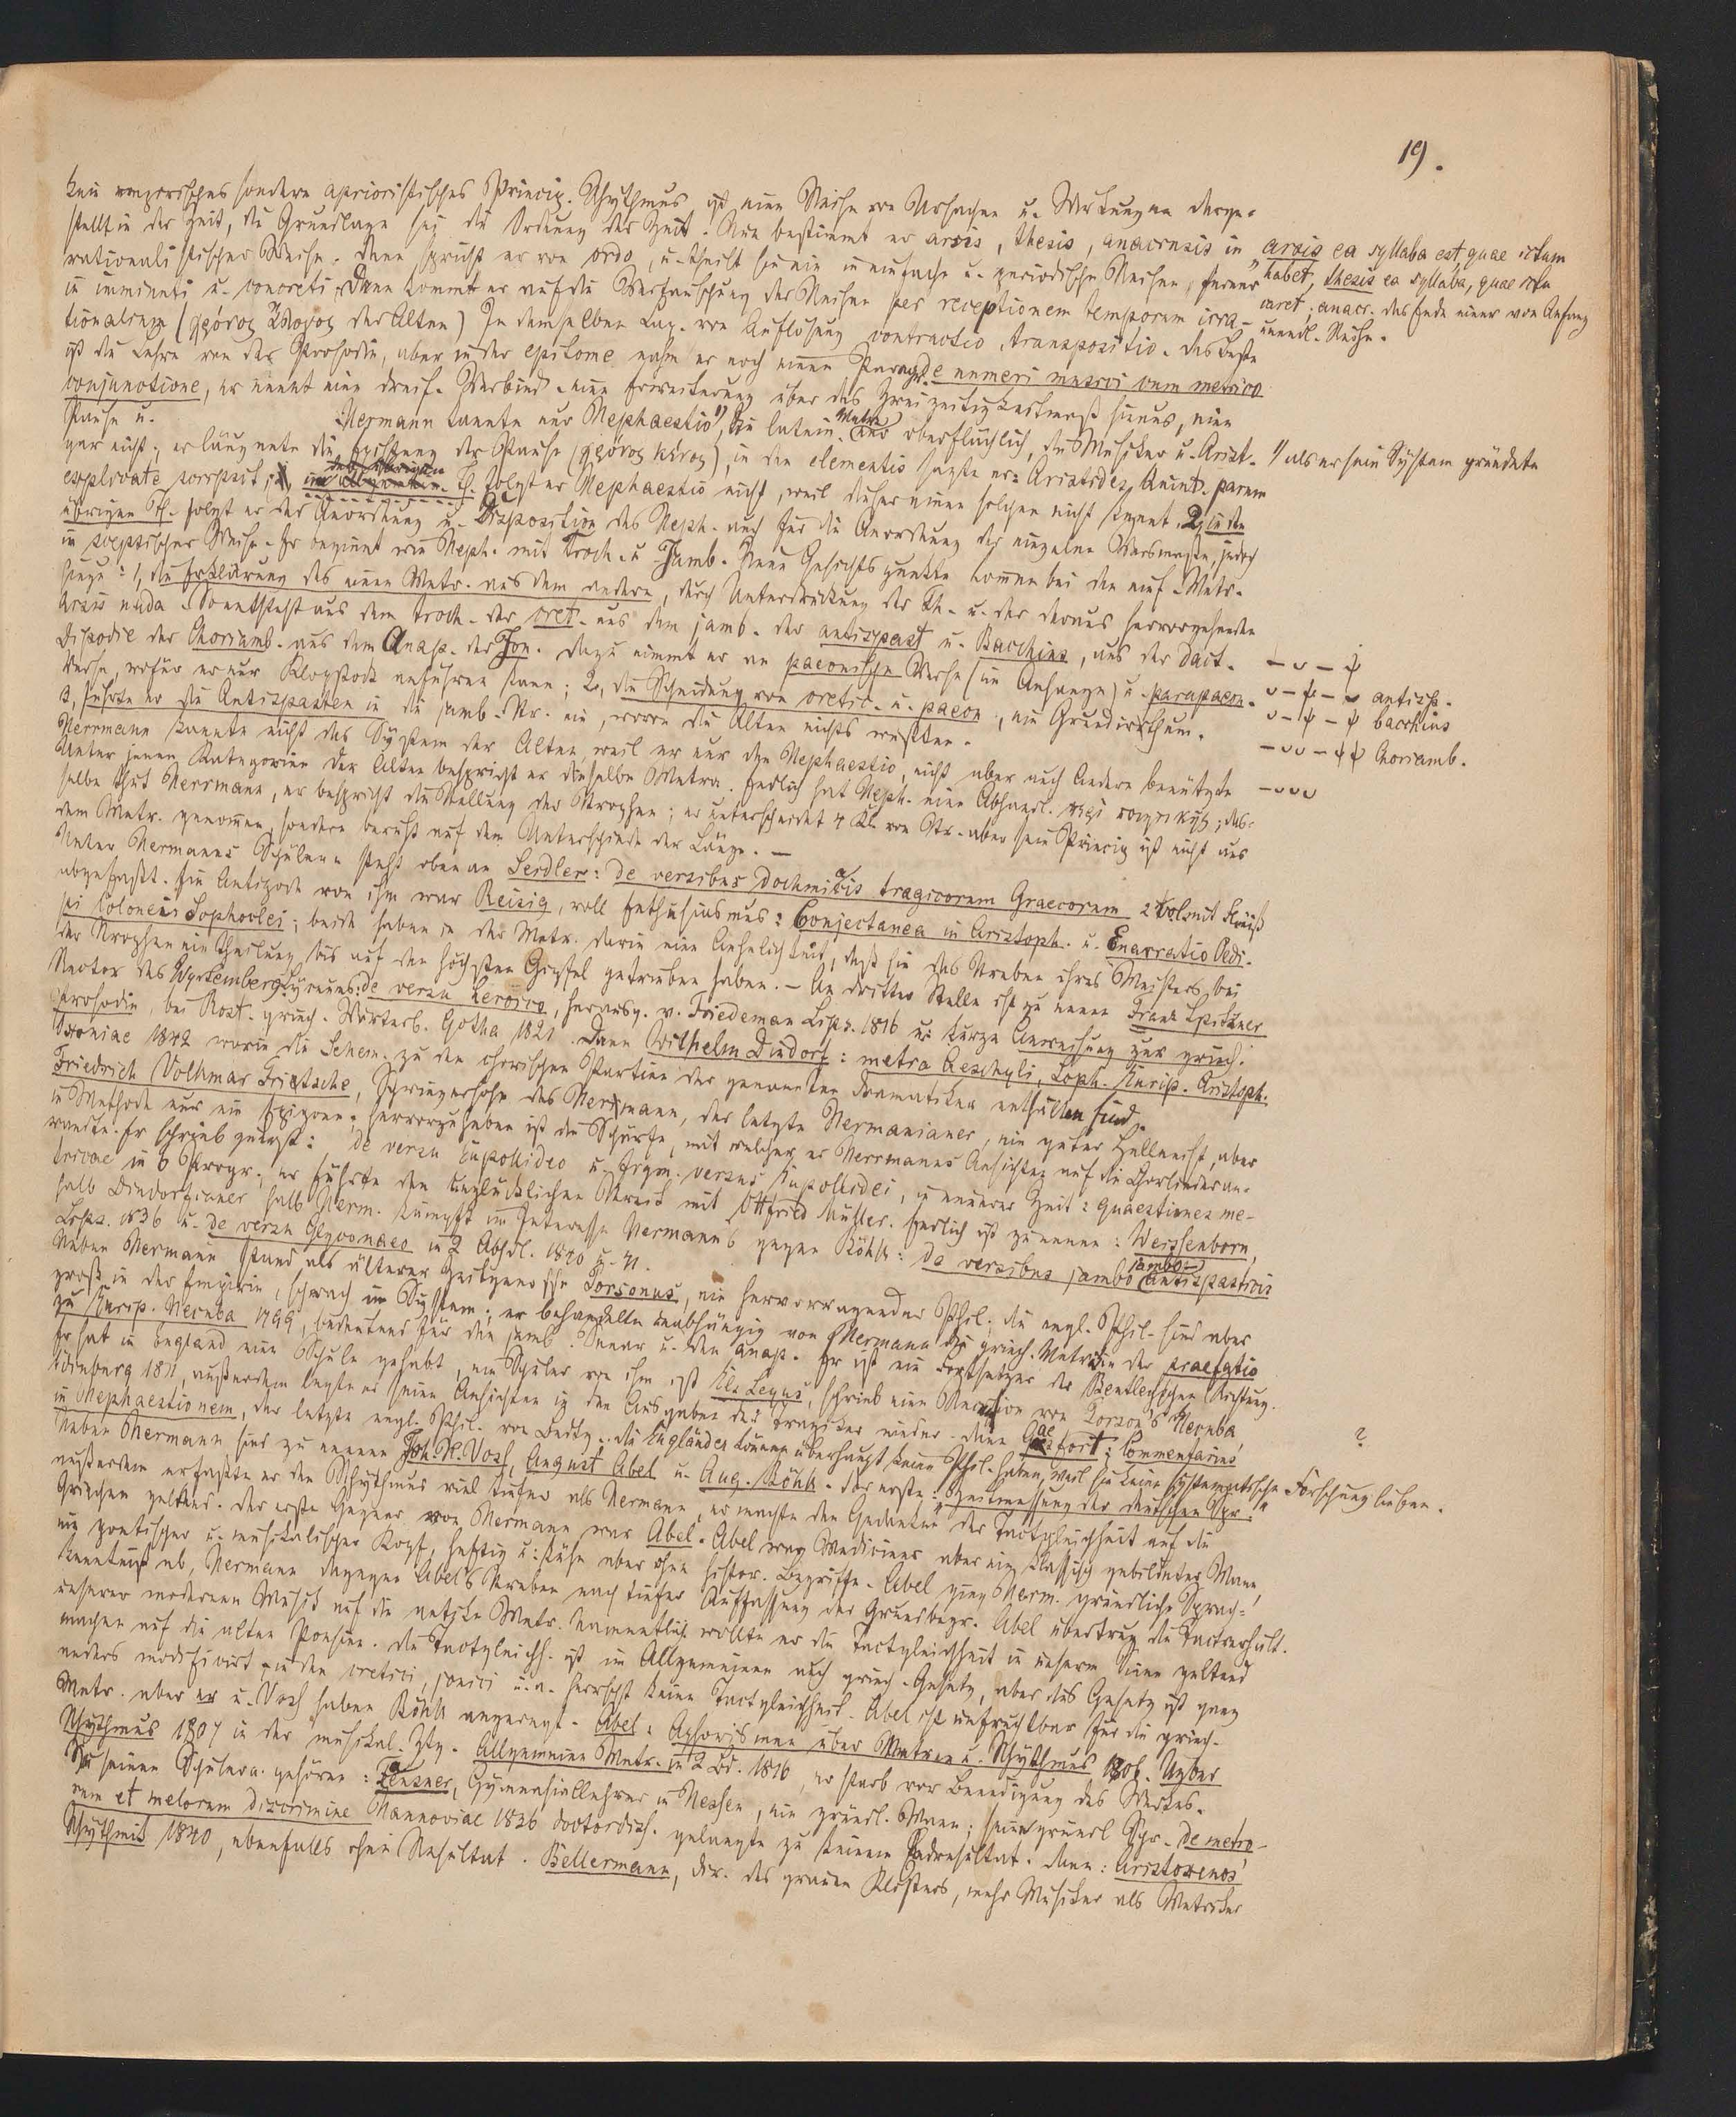 19.
kein empirisches sondern aprioristisches Princip. Rhythmus ist eine Reihe von Ursachen u. Wirkungen darge-
stellt in der Zeit, die Grundlage sei die Ordnung der Zeit. Nun bestimmt er arsis, thesis, anacrusis in
rationalistischer Weise. Dann spricht er von ordo, u. theilt sie ein in einfache u. periodische Reihen, ferner
in eminenti u. concreti. Dann kommt er auf die Vertauschung der Reihen per receptionem temporum irra-
tionalium (χρόνος ἄλογος der Alten) In demselben Cap. von Auflösung contractio, transpositio. Das Beste
ist die Lehre von der Prosodie, aber in der epitome nahm er noch einen Paragr. de numeri musici cum metrico
conjunctione, er nennt eine dreif. Verbind. eine Erweiterung über das Zweizeitigkeitsmaß hinaus, eine
Pause u. Hermann kannte nur Hephaestio 1), die latein. Metr. oberflächlich, die Musiker u. Arist.
gar nicht; er läugnete die Existenz der Pause (χρόνος κένος), in den elementis sagte er: Aristides, Quint. parum
explicate scripsit; folgt er Hephaestio nicht, weil dieser einen solchen nicht kennt. 2, in den
übrigen Th. folgt er der Anordnung u. Disposition des Heph. auch für die Anordnung der einzelnen Versmaße, jedoch
in skeptischer Weise. Er beginnt wie Heph. mit Troch. u. Jamb. Neue Gesichtspunkte kommen bei den auf. Metr.
hinzu: 1, die Erklärung des einen Metr. aus dem andern, durch Unterdrückung der Th. u. der daraus hervorgehenden
Arsis nuda. So entsteht aus dem troch. der cret. aus dem jamb. der antispast u. Bacchius, aus der dact.
Dipodie der Choriamb. aus dem Anap. der Jon. Dazu nimmt er an paeonische Verse (im Anfange) u. parapaeon.
Verse, wofür er nur Klopstock anführen kann; 2, die Scheidung von cretic. u. paeon, ein Grundirrthum.
3, führte er die Antispasten in die jamb. Str. ein, wovon die Alten nichts wußten.
Herrmann kannte nicht das System der Alten, weil er nur den Hephaestio, nicht aber auch Andere benützte
Unter jenen Kategorien der Alten bespricht er dieselben Metra. Endlich hat Heph. eine Abhandl. das-
selbe thut Herrmann, er bespricht die Stellung der Strophen; er unterscheidet 4 Kl. von Str. aber sein Princip ist nicht aus
dem Metr. genommen, sondern beruht auf dem Unterschiede der Länge. —
Unter Hermanns Schülern steht obenan Seidler: de versibus dochmiacis tragicorum Graecorum 2 Vol. mit Fleiß
abgefaßt. Ein Antipode von ihm war Reisig, voll Enthusiasmus: Conjectanea in Aristoph. u. Enarratio Oedi-
pi Colonei Sophoclei; beide haben in der Metr. darin eine Aehnlichkeit, daß sie das Streben ihres Meisters bei
der Stropheneintheilung bis auf den höchsten Gipfel getrieben haben. – An dritter Stelle ist zu nennen Franz Spitzner
Rector des Wyttemberg. Lyceums: de versu heroico, herausg. v. Friedeman Lips. 1816 u: kurze Anweisung zur griech.
Prosodie, bei Rost. griech. Wörterb. Gotha 1821. Dann Wilhelm Dindorf: metra Aeschyli, Soph. Eurip. Aristoph.
Oxoniae 1842 worin die Schem. zu den chorischen Partien der genannten Dramatiker enthalten sind.
Friedrich Volkmar Fritzsche, Schwiegersohn des Hermann, der letzte Hermanianer, ein guter Hellenist, aber
in Methode nur ein Epigone; hervorzuheben ist die Schärfe, mit welcher er Herrmanns Ansichten auf die Chorlieder an-
wandte. Er schrieb zuerst: de versu Eupolideo u. Origin. versus Eupolidei, in neuerer Zeit: quaestiones me-
tricae in 6 Progr.; er führte den unglücklichen Streit mit Ottfried Müller. Endlich ist zu nennen: Weissenborn,
halb Dindorfianer halb Herm. kämpft im Interesse Hermanns gegen Böhk: de versibus jambo antispasticis
Lips. 1836 u. de versu Glyconaeo in 2 Abthl. 1840 u. 41.
Neben Hermann stand als älterer Zeitgenosse Porsonus, ein hervorragender Phil.; die engl. Phil. sind aber
groß in der Empirie, schwach im System; er behandelte unabhängig von Hermann die griech. Metrik in der praefatio
zu Eurip. Hecuba 1799, bedeutend für den jamb. Senar u. den anap. Er ist ein Fortsetzer der Bentleischen Richtung.
Er hat in England eine Schule gehabt, ein Schüler von ihm ist , schrieb eine Recension von Porson's Hecuba
Edinburg 1811, außerdem legte er seine Ansichten in den Ausgaben der Tragiker nieder. Dann Gaesfort: Commentarius
in Hephaestionem, der letzte engl. Phil. von Bedtg.. Die Engländer können überhaupt keine Phil. haben, weil sie keine systematische Forschung lieben.
Neben Hermann sind zu nennen Joh. H. Voß, August Abel u. Aug. Böhk. Der erste: „Zeitmessung der deutschen Spr.“
außerdem erfaßte er den Rhythmus viel tiefer als Hermann, er machte den Gedanken der Tactgleichheit auf die
Griechen geltend. Der erste Gegner von Hermann war Abel. Abel war Mediciner aber ein klassisch gebildeter Mann,
ein poetischer u. musikalischer Kopf, heftig u: kühn aber ohne histor. Begriffe. Abel ging Herm. gründliche Sprach-
kenntniß ab, Hermann dagegen Abels Streben nach tiefer Auffassung der Grundbegr. Abel übertrug die Tactverhält.
unserer modernen Musik auf die antike Metr. Namentlich wollte er die Tactgleichheit in unserm Sinne geltend
machen auf die alten Poesien. Die Tactgleichh. ist im Allgemeinen auch griech. Gesetz, aber dies Gesetz ist ganz
anders modificirt in den cretici, jonici u.a. herrscht keine Tactgleichheit. Abel ist unfruchtbar für die griech.
Metr. aber er u. Voß haben Böhk angeregt. Abel: Aphorismen über Metren u. Rhythmus 1806. Ueber
Rhythmus 1807 in der musikal. Ztg. Allgemeine Metr. in 2 Bd. 1816, er starb vor Beendigung des Werkes.
Zu seinen Schülern gehören: Feusner, Gymnasiallehrer in Hessen, ein gründl. Mann; seine gründl Schr. de metro-
rum et melorum discrimine Hannoviae 1836 doctordiss. gelangte zu keinem Endresultat. Dann: Aristoxenos'
Rhythmik 1840, ebenfalls ohne Resultat. Bellermann, Dir. des grauen Klosters, mehr Musiker als Metriker
„arsis ea syllaba est quae ictum
habet, thesis ea syllaba, quae ictu
caret; anacr. das Ende einer von Anfang
unendl. Reihe.
1/ als er sein System gründete
antisp.
bacchius
Choriamb.
?